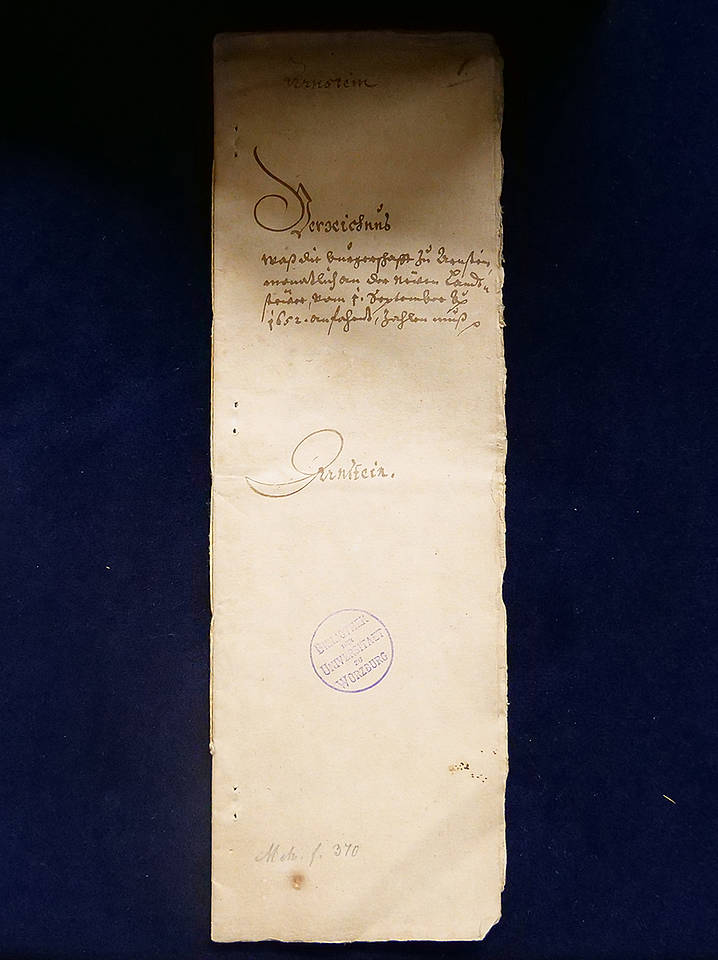 Arnstein
1.
Verzeichnus
Waß die burgerschafft zu Arnstein,
monatlich an der newen Landt-
stewer, vom 1. September Ao
1652. anfahent, zahlen muß
Arnstein.
BIBLIOTHEK
DER
UNIVERSITAET
ZU
WÜRZBURG
Mch. f. 370